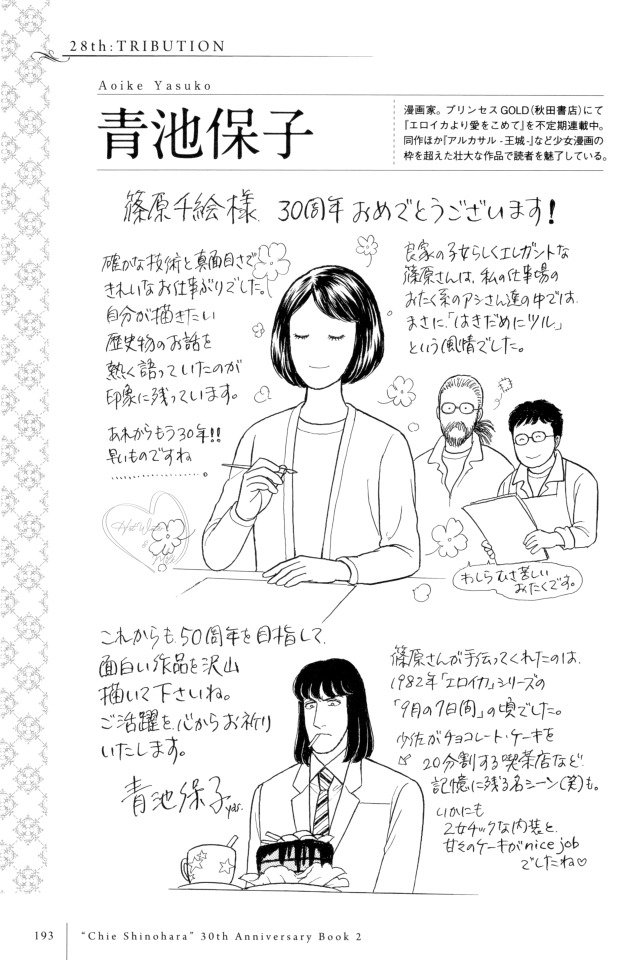 28th:TRIBUTION
Aoike Yasuko
青池保子
漫画家。プリンセスGOLD(秋田書店)にて
『エロイカより愛をこめて』を不定期連載中。
同作ほか『アルカサル -王城-』など少女漫画の
枠を超えた壮大な作品で読者を魅了している。
篠原千絵様 30周年おめでとうございます!
良家の子女らしくエレガントな
篠原さんは、私の仕事場の
おたく系のアシさん達の中では
まさに「はきだめにツル」
という風情でした。
確かな技術と真面目さで
きれいなお仕事がりでした。
自分が描きたい
歴史物のお話を
熱く語っていたのが
印象に残っています。
あれからもう30年!!
早いものですね
わしらむさ苦しい
おたくです。
これからも50周年を目指して
面白い作品を沢山
描いて下さいね。
ご活躍を心からお祈り
いたします。
青池保子
篠原さんが手伝ってくれたのは、
1982年「エロイカ」シリーズの
「9月の7日間」の頃でした。
少佐がチョコレート・ケーキを
20分割する喫茶店など
記憶に残る名シーン(笑)も。
いかにも
乙女チックな内装と
甘々のケーキがnice job
でしたね♡
193
"Chie Shinohara" 30th Anniversary Book 2